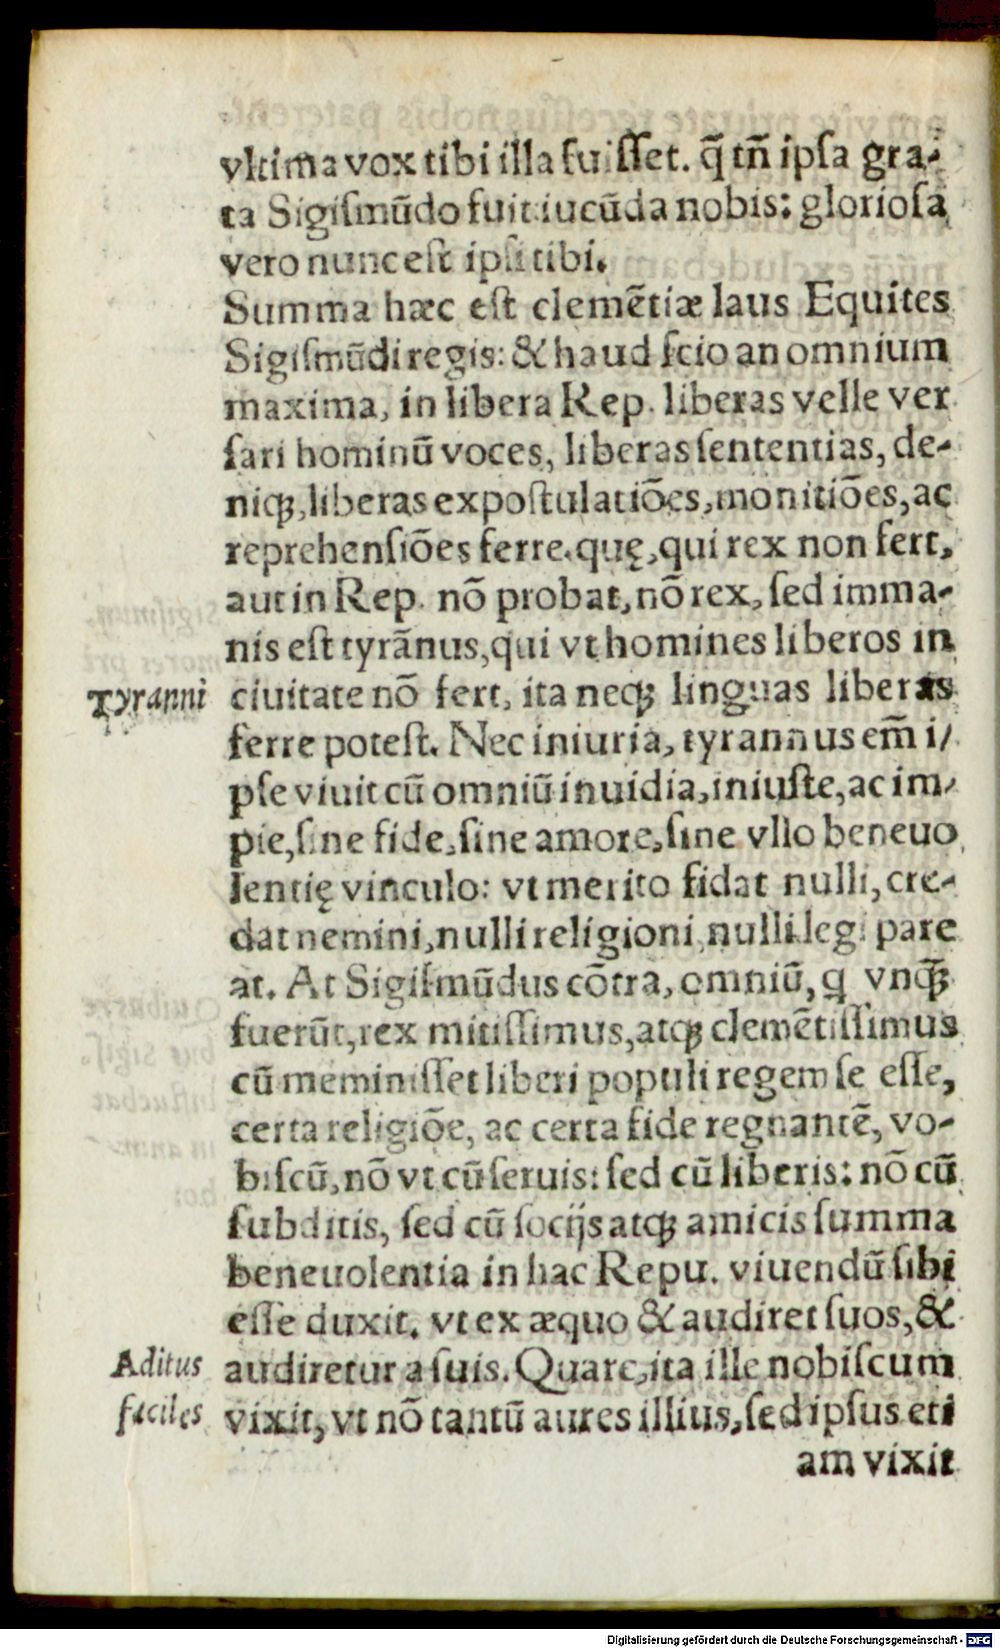 vltima vox tibi illa fuiſſet. q̃ tñ ipſa gra-
ta Sigiſmũdo fuit: iucũda nobis: glorioſa
vero nunc eſt ipſi tibi.
Summa hæc eſt clemẽtiæ laus Equites
Sigiſmũdi regis: & haud ſcio an omnium
maxima, in libera Rep. liberas velle ver
ſari hominũ voces, liberas ſententias, de-
niqꝫ, liberas expoſtulatiões, monitiões, ac
reprehenſiões ferre. quę, qui rex non fert,
aut in Rep. nõ probat, nõ rex, ſed imma-
nis eſt tyrãnus, qui vt homines liberos in
Tyranni
ciuitate nõ fert, ita neqꝫ linguas liberas
ferre poteſt. Nec iniuria, tyrannus em̃ i/
pſe viuit cũ omniũ inuidia, iniuſte, ac im/
pie, ſine fide, ſine amore, ſine vllo beneuo
lentię vinculo: vt merito fidat nulli, cre-
dat nemini, nulli religioni, nulli legi pare
at. At Sigiſmũdus cõtra, omniũ, q vnqꝫ̃
fuerũt, rex mitiſſimus, atqꝫ clemẽtiſſimus
cũ meminiſſet liberi populi regem ſe eſſe,
certa religiõe, ac certa fide regnantẽ, vo-
biſcũ, nõ vt cũ ſeruis: ſed cũ liberis: nõ cũ
ſubditis, ſed cũ ſocijs atqꝫ amicis ſumma
beneuolentia in hac Repu. viuendũ ſibi
eſſe duxit. vt ex æquo & audiret ſuos, &
Aditus
faciles
audiretur a ſuis. Quare, ita ille nobiſcum
vixit, vt nõ tantũ aures illius, ſed ipſus eti
am vixit
Digitalisierung gefördert durch die Deutsche Forschungsgemeinschaft - DFG